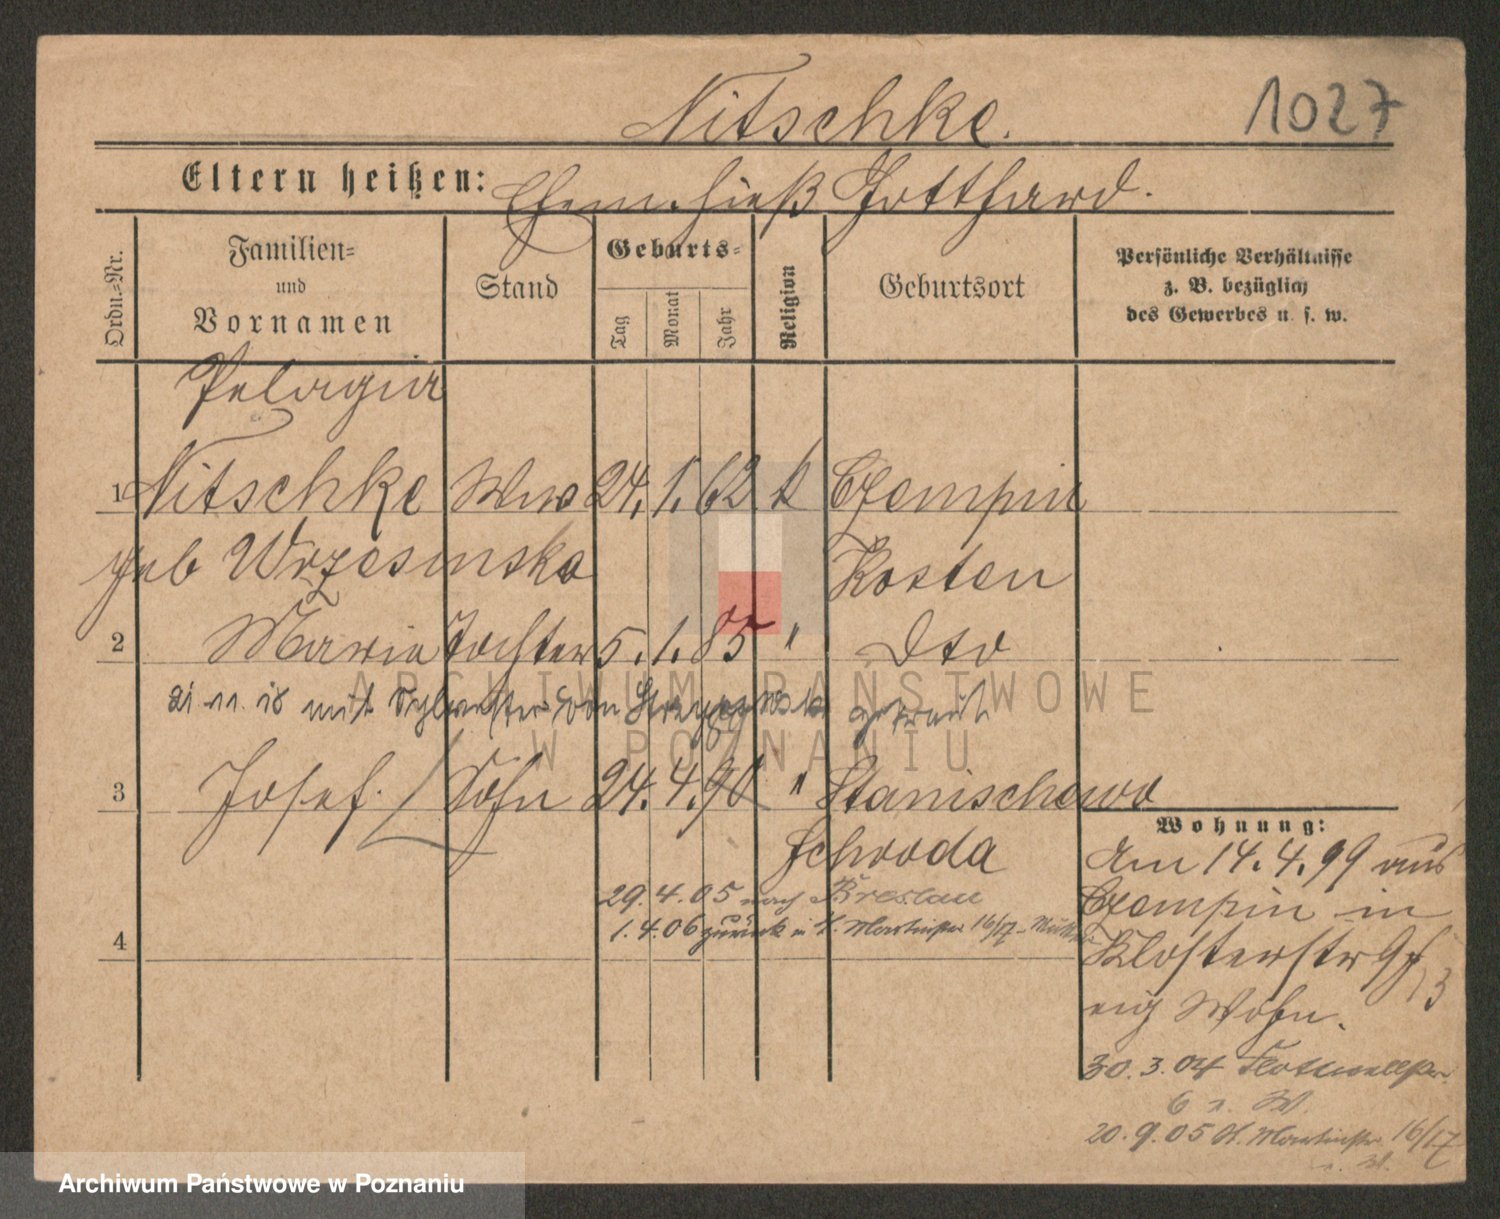 Nitschke.
1027
Eltern heißen: Ehem. hieß Gotthard.
Ordn.-Nr.
Familien-
und
Vornamen
Stand
Geburts-
Tag
Monat
Jahr
Religion
Geburtsort
Persönliche Verhältnisse
z. B. bezüglich
des Gewerbes u. s. w.
Pelagia
1 Nitschke Wwe 24. 1. 62 k Czempin
geb Wrzesinska Kosten
2 Maria Tochter 5. 1. 85 " Dto
21 11 18 mit Sylvester von getraut
3 Josef. Sohn 24. 4. 90 " Stanischewo
Schroda
29. 4. 05 nach Breslau
4 1. 4. 06 zurück St. Martinstr 16/17
Wohnung:
Am 14. 4. 99 aus
Czempin in
Klosterstr
13
eig Wohn.
30. 3. 04 Flottwellstr.
6 W.
20. 9. 05 St. Martinstr. 16/17
ARCHIWUM PAŃSTWOWE
W POZNANIU
Archiwum Państwowe w Poznaniu